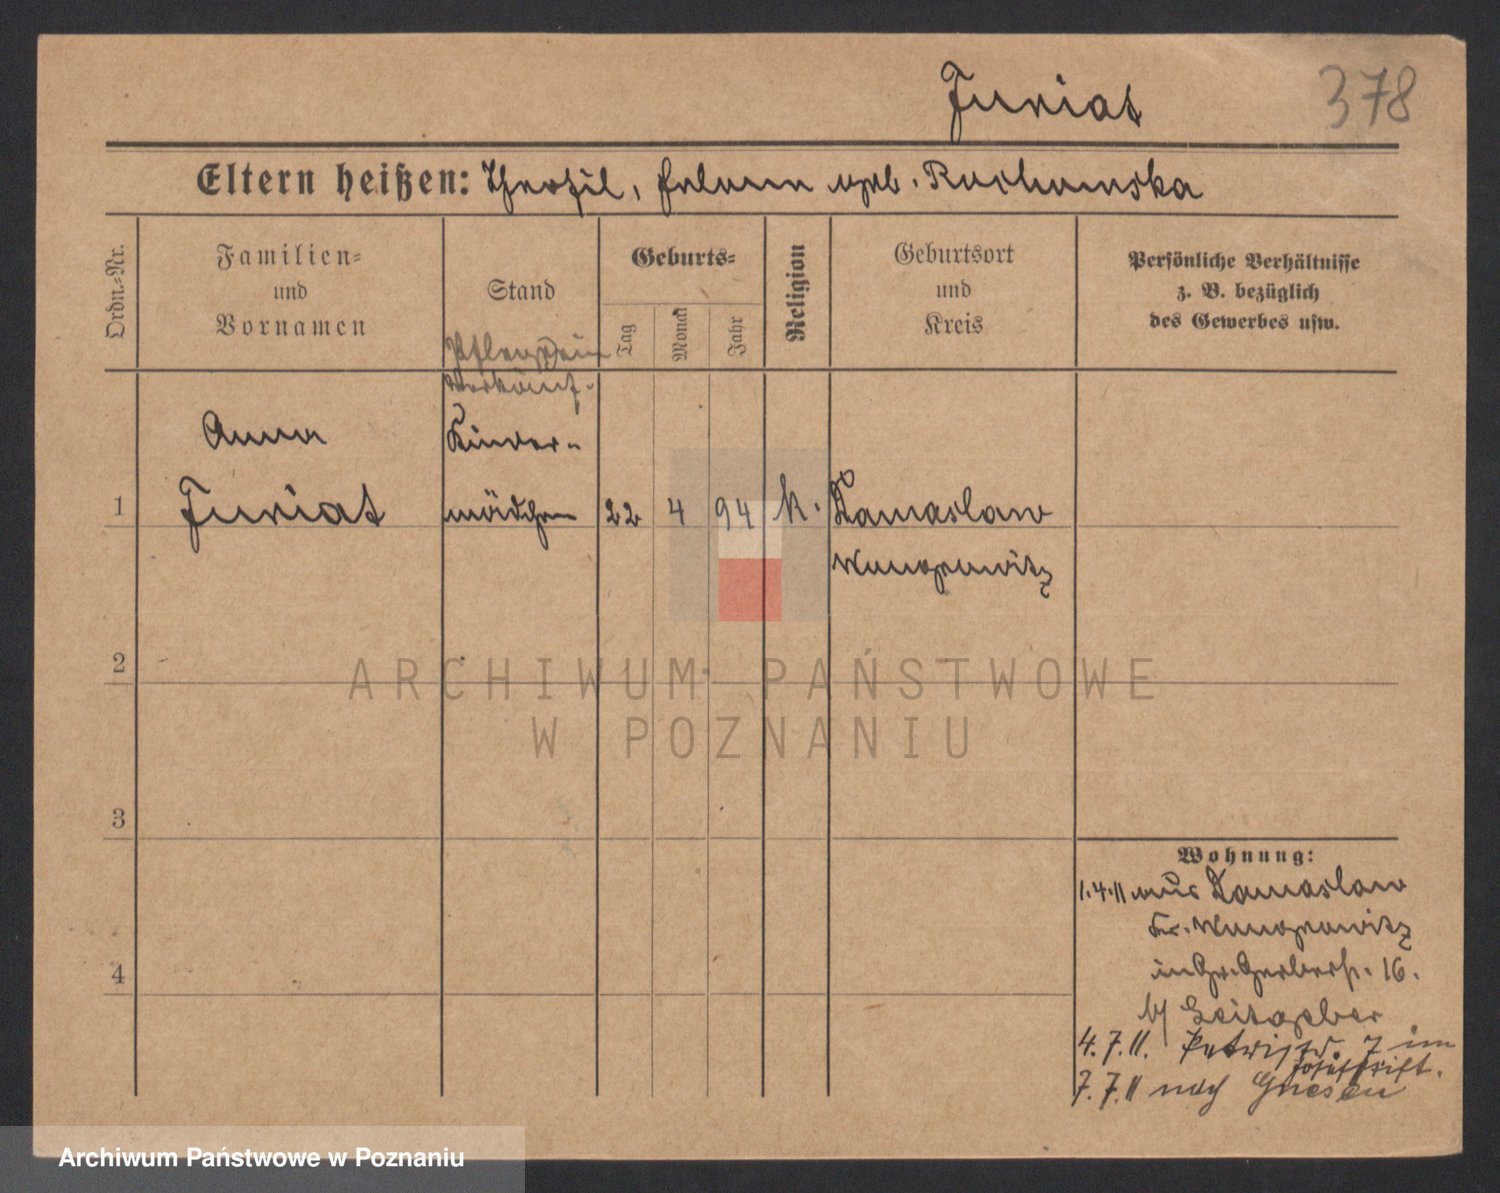 Juriat
378
Eltern heißen: Theofil, Helene geb. Rochowska
Ordn.-Nr.
Familien-
und
Vornamen
Stand
Geburts-
Tag
Monat
Jahr
Religion
Geburtsort
und
Kreis
Persönliche Verhältnisse
z. B. bezüglich
des Gewerbes usw.
Verkäuf.
Anna
Kinder-
1 Juriat mädchen 22 4 94 k. Damaslaw
Wongrowitz
2
ARCHIWUM PAŃSTWOWE
W POZNANIU
3
Wohnung:
1.4.11 aus Damaslaw
Kr. Wongrowitz
4
in Gr. Gerberstr. 16.
b/ Leitgeber
4.7.11. Petristr. 7 im
Josefstift.
7.7.11 nach Gnesen
Archiwum Państwowe w Poznaniu